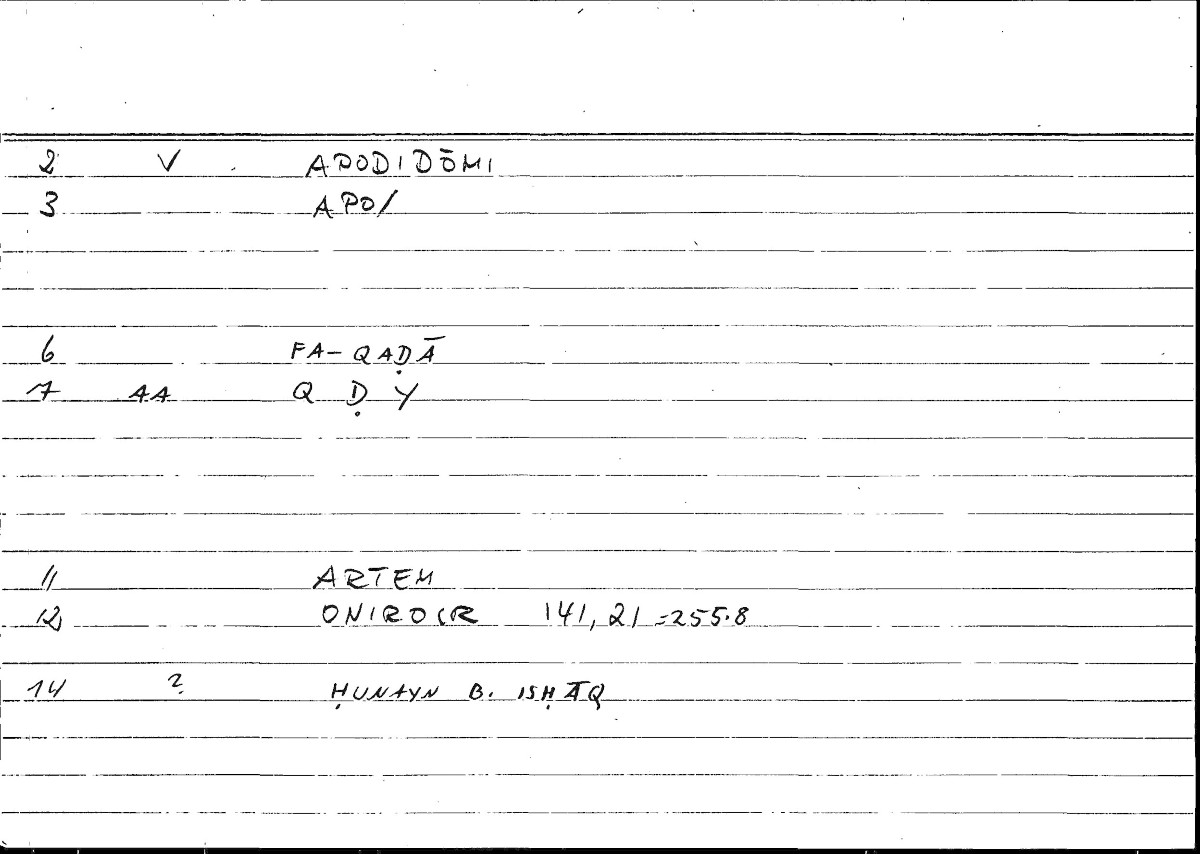 2 V APODIDŌMI
3 APO/
6 FA-QAḌĀ
7 AA Q Ḍ Y
11 ARTEM
12 ONIROCR 141,21=255.8
14 ? ḤUNAYN B. ISḤĀQ